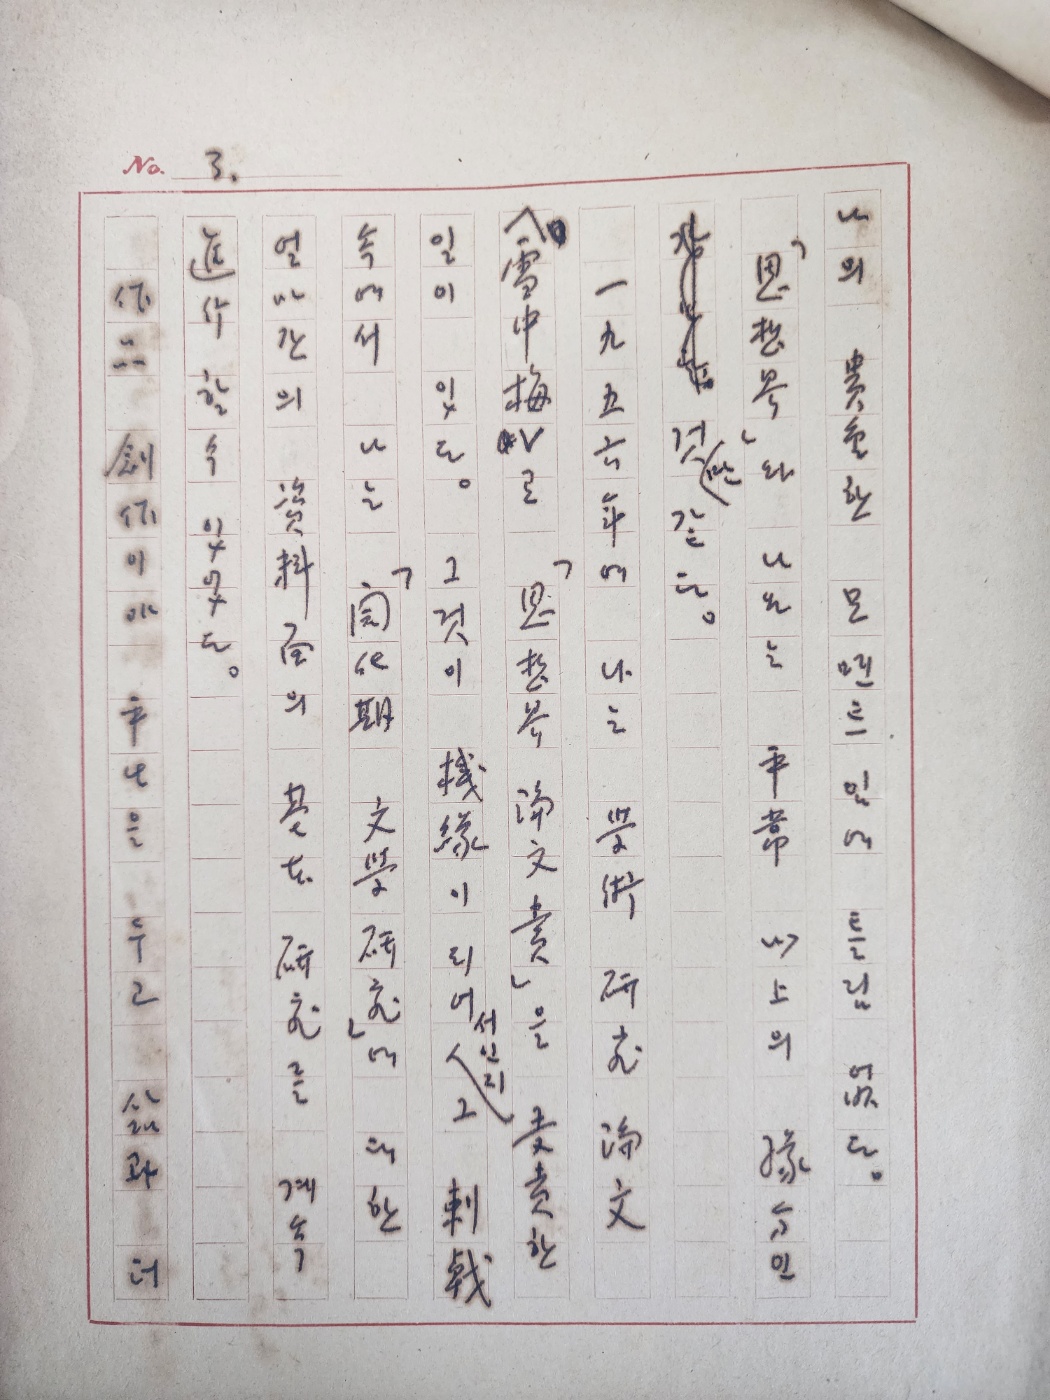 No. 3.
나의 貴重한 모멘트 임에 틀림 없다.
「思想界」와 나와는 平常 以上의 緣分인
것만 같다.
一九五六年에 나는 學術 研究 論文
〈雪中梅〉로 「思想界 論文賞」을 受賞한
일이 있다。 그것이 機緣이 되어서인지 그 刺戟
속에서 나는 「開化期 文學 研究」에 대한
얼마간의 資料面의 基本 研究를 계속
進行할 수 있었다。
作品 創作이야 平生을 두고 삶과 더